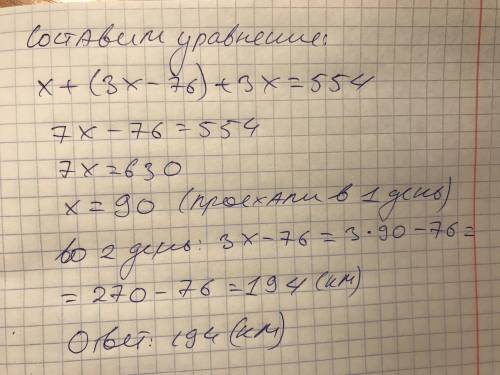 Составим уравнение:
x + (3x - 76) + 3x = 554
7x - 76 = 554
7x = 630
x = 90 (проехали в 1 день)
во 2 день: 3x - 76 = 3·90 - 76 =
= 270 - 76 = 194 (км)
Ответ: 194 (км)